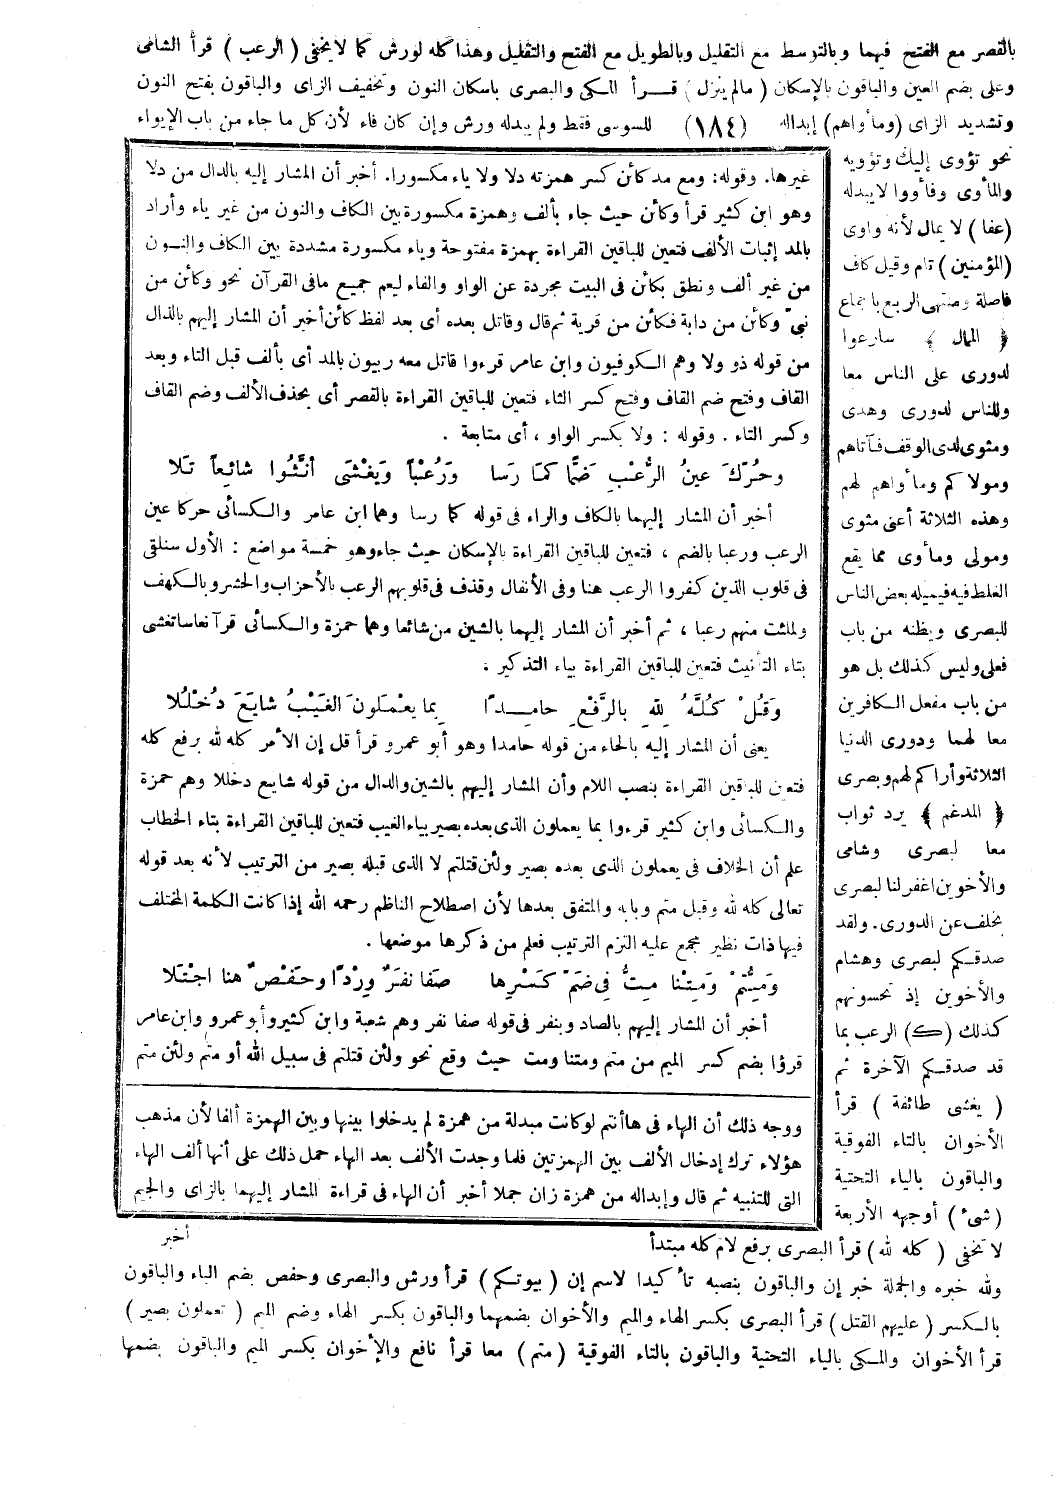 بالقصر مع الفتح فيهما وبالتوسط مع التقليل وبالطويل مع الفتح والتقليل وهذا كله لورش كما لا يخفى (الرعب) قرأ الشامى
وعلى بضم العين والباقون بالإسكان (مالم ينزل) قرأ المكى والبصرى باسكان النون وتخفيف الزاى والباقون بفتح النون
وتشديد الزاى (ومأواهم) إبداله (١٨٤) للسوسى فقط ولم يبدله ورش وإن كان فاء لأن كل ما جاء من باب الإيواء
نحو تؤوى إليك وتؤويه
والمأوى وفأووا لا يبدله
(عفا) لا يمال لأنه واوى
(المؤمنين) تام وقيل كاف
فاصلة ومنتهى الربع باجماع
﴿ الممال ﴾ سارعوا
لدورى على الناس معا
وللناس لدورى وهدى
ومثوى لدى الوقف فآتاهم
ومولاكم ومأواهم لهم
وهذه الثلاثة أعنى مثوى
ومولى ومأوى مما يقع
الغلط فيه فيميله بعض الناس
للبصرى ويظنه من باب
فعلى وليس كذلك بل هو
من باب مفعل الكافرين
معا لهما ودورى الدنيا
الثلاثة وأراكم لهم وبصرى
﴿ المدغم ﴾ يرد ثواب
معا لبصرى وشامى
والأخوين اغفر لنا لبصرى
بخلف عن الدورى. ولقد
صدقكم لبصرى وهشام
والأخوين إذ تحسونهم
كذلك (ك) الرعب بما
قد صدقكم الآخرة ثم
(يغشى طائفة) قرأ
الأخوان بالتاء الفوقية
والباقون بالياء التحتية
(شىء) أوجهه الأربعة
لا تخفى (كله لله) قرأ البصرى برفع لام كله مبتدأ
ولله خبره والجملة خبر إن والباقون بنصبه تأكيدا لاسم إن (بيوتكم) قرأ ورش والبصرى وحفص بضم الباء والباقون
بالكسر (عليهم القتل) قرأ البصرى بكسر الهاء والميم والأخوان بضمهما والباقون بكسر الهاء وضم الميم (تعملون بصير)
قرأ الأخوان والمكى بالياء التحتية والباقون بالتاء الفوقية (متم) معا قرأ نافع والأخوان بكسر الميم والباقون بضمها
غيرها. وقوله: ومع مد كائن كسر همزته دلا ولا ياء مكسورا. أخبر أن المشار إليه بالدال من دلا
وهو ابن كثير قرأ وكائن حيث جاء بألف وهمزة مكسورة بين الكاف والنون من غير ياء وأراد
بالمد إثبات الألف فتعين للباقين القراءة بهمزة مفتوحة وياء مكسورة مشددة بين الكاف والنون
من غير ألف ونطق بكائن فى البيت مجردة عن الواو والفاء ليعم جميع مافى القرآن نحو وكأين من
نبىّ وكأين من دابة فكأين من قرية ثم قال وقاتل بعده أى بعد لفظ كائن أخبر أن المشار إليهم بالذال
من قوله ذو ولا وهم الكوفيون وابن عامر قرءوا قاتل معه ربيون بالمد أى بألف قبل التاء وبعد
القاف وفتح ضم القاف وفتح كسر التاء فتعين للباقين القراءة بالقصر أى بحذف الألف وضم القاف
وكسر التاء. وقوله: ولا بكسر الواو، أى متابعة.
وحُرِّكَ عينُ الرُّعْبِ ضَمًّا كمَا رَسا وَرُعْبًا وَيَغْشَى أنَّثُوا شائِعاً تَلا
أخبر أن المشار إليهما بالكاف والراء فى قوله كما رسا وهما ابن عامر والكسائى حركا عين
الرعب ورعبا بالضم، فتعين للباقين القراءة بالإسكان حيث جاء وهو خمسة مواضع: الأول سنلقى
فى قلوب الذين كفروا الرعب هنا وفى الأنفال وقذف فى قلوبهم الرعب بالأحزاب والحشر وبالكهف
ولملئت منهم رعبا، ثم أخبر أن المشار إليهما بالشين من شائعا وهما حمزة والكسائى قرآ نعاسا تغشى
بتاء التأنيث فتعين للباقين القراءة بياء التذكير.
وَقُلْ كُلُّهُ لِلهِ بالرَّفْعِ حامِدًا بِما يعْمَلُونَ الغَيْبُ شايَعَ دُخْلُلا
يعنى أن المشار إليه بالحاء من قوله حامدا وهو أبو عمرو قرأ قل إن الأمر كله لله برفع كله
فتعين للباقين القراءة بنصب اللام وأن المشار إليهم بالشين والدال من قوله شايع دخللا وهم حمزة
والكسائى وابن كثير قرءوا بما يعملون الذى بعده بصير بياء الغيب فتعين للباقين القراءة بتاء الخطاب
علم أن الخلاف فى يعملون الذى بعده بصير ولئن قتلتم لا الذى قبله بصير من الترتيب لأنه بعد قوله
تعالى كله لله وقبل متم وبابه والمتفق بعدها لأن اصطلاح الناظم رحمه الله إذا كانت الكلمة المختلف
فيها ذات نظير مجمع عليه التزم الترتيب فعلم من ذكرها موضعها.
وَمِتُّمْ وَمِتْنا مِتُّ فى ضَمّ كَسْرِها صَفا نَفَرٌ وِرْدًا وحَفْصٌ هنا اجْتَلا
أخبر أن المشار إليهم بالصاد وبنفر فى قوله صفا نفر وهم شعبة وابن كثير وأبو عمرو وابن عامر
قرؤا بضم كسر الميم من متم ومتنا ومت حيث وقع نحو ولئن قتلتم فى سبيل الله أو متم ولئن متم
ووجه ذلك أن الهاء فى هاأنتم لوكانت مبدلة من همزة لم يدخلوا بينها وبين الهمزة ألفا لأن مذهب
هؤلاء ترك إدخال الألف بين الهمزتين فلما وجدت الألف بعد الهاء حمل ذلك على أنها ألف الهاء
التى للتنبيه ثم قال وإبداله من همزة زان جملا أخبر أن الهاء فى قراءة المشار إليهما بالزاى والجيم
أخبر